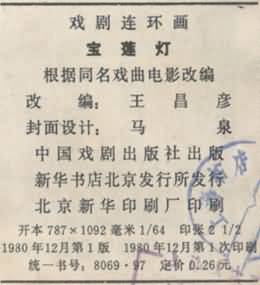 戏剧连环画
宝莲灯
根据同名戏曲电影改编
改编：王昌彦
封面设计：马泉
中国戏剧出版社出版
新华书店北京发行所发行
北京新华印刷厂印刷
开本 787×1092 毫米 1/64 印张 2 1/2
1980年12月第1版 1980年12月第1次印刷
统一书号：8069·97 定价0.26元